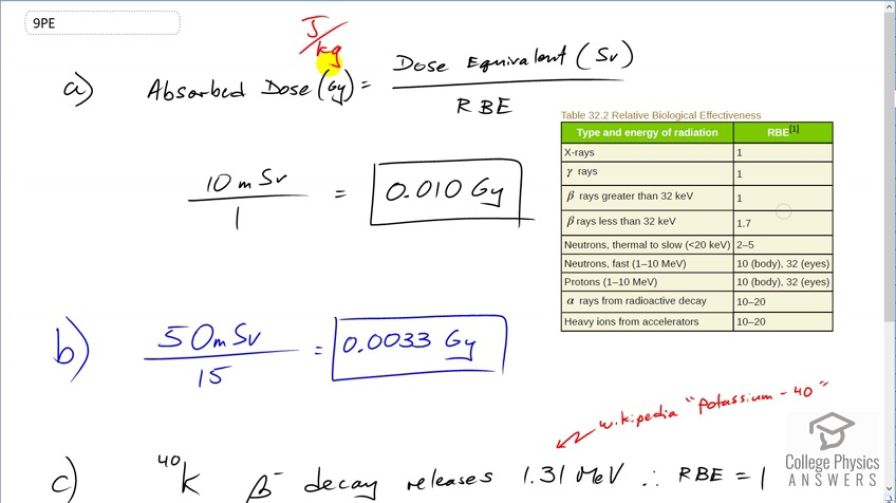 9PE
J/kg
a) Absorbed Dose (Gy) = Dose Equivalent (Sv) / RBE
10 m Sv / 1 = 0.010 Gy
Table 32.2 Relative Biological Effectiveness
Type and energy of radiation RBE[1]
X-rays 1
γ rays 1
β rays greater than 32 keV 1
β rays less than 32 keV 1.7
Neutrons, thermal to slow (<20 keV) 2–5
Neutrons, fast (1–10 MeV) 10 (body), 32 (eyes)
Protons (1–10 MeV) 10 (body), 32 (eyes)
α rays from radioactive decay 10–20
Heavy ions from accelerators 10–20
b) 50 m Sv / 15 = 0.0033 Gy
wikipedia "Potassium - 40"
c) ⁴⁰K β⁻ decay releases 1.31 MeV ∴ RBE = 1
College Physics
ANSWERS